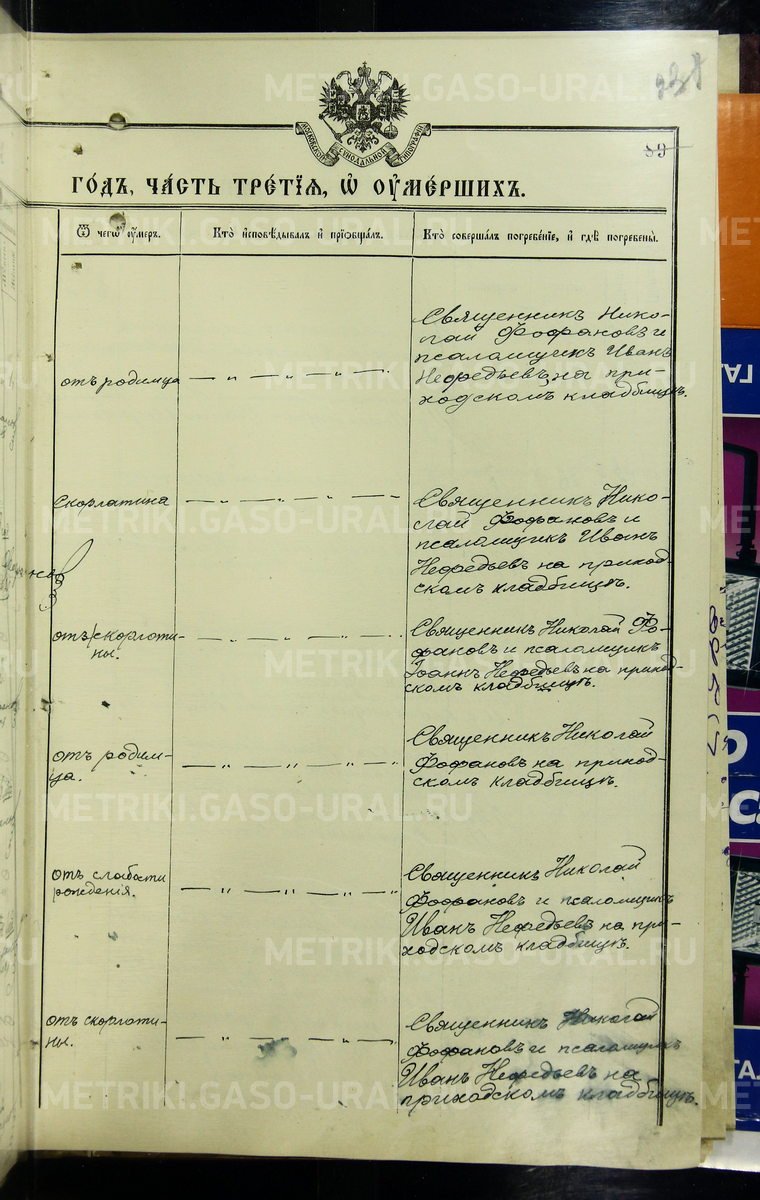 METRIKI.GASO-URAL.RU
МОСКОВСКОЙ СѴНОДАЛЬНОЙ ТИПОГРАФІИ
89
го́дъ, ча́сть тре́тїѧ, ѡ҆ ᲂу҆ме́ршихъ.
Ѿ чегѡ̀ ᲂу҆́меръ.
Кто̀ и҆сповѣ́дывалъ и҆ прїѡбща́лъ.
Кто̀ соверша́лъ погребе́нїе, и҆ гдѣ̀ погребены̀.
отъ родимца
— „ — „ — „ —
Священникъ Нико-
лай Фофановъ и
псаломщикъ Иванъ
Нефедьевъ, на при-
ходскомъ кладбищѣ.
Скорлатина
— „ — „ — „ —
Священникъ Нико-
лай Фофановъ и
псаломщикъ Иванъ
Нефедьевъ на приход-
скомъ кладбищѣ.
отъ скорлоти-
ны.
— „ — „ — „ —
Священникъ Николай Фо-
фановъ и псаломщикъ
Іоаннъ Нефедьевъ на приход-
скомъ кладбищѣ.
отъ родим-
ца.
— „ — „ — „ —
Священникъ Николай
Фофановъ на приход-
скомъ кладбищѣ.
отъ слабости
рождения.
— „ — „ — „ —
Священникъ Николай
Фофановъ и псаломщикъ
Иванъ Нефедьевъ на при-
ходскомъ кладбищѣ.
отъ скорлоти-
ны.
— „ — „ — „ —
Священникъ Николай
Фофановъ и псаломщикъ
Иванъ Нефедьевъ на
приходскомъ кладбищѣ.